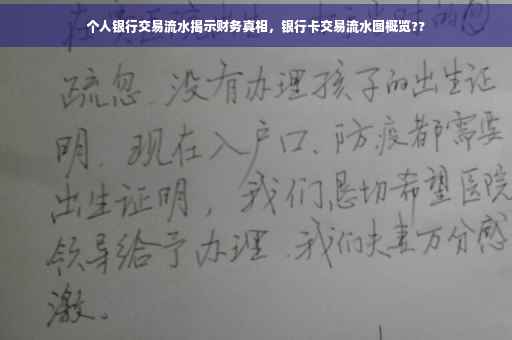 个人银行交易流水揭示财务真相，银行卡交易流水图概览??
疏忽、没有办理孩子的出生证
明、现在入户口、防疫都需要
出生证明，我们恳切希望医院
领导给予办理、我们夫妻万分感
激。